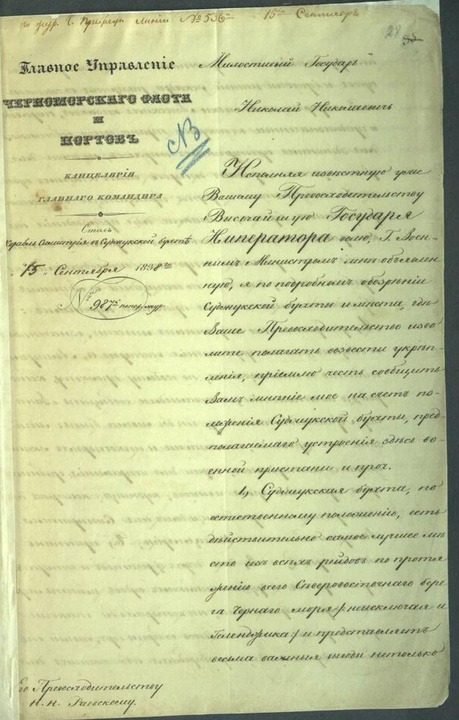 № 556 15 Сентября
28
Главное Управленіе
ЧЕРНОМОРСКАГО ФЛОТА
И
ПОРТОВЪ
КАНЦЕЛЯРІЯ
ГЛАВНАГО КОМАНДИРА
Столъ
Корабль Силистрія въ Суджукской бухтѣ
15 Сентября 1838 го
№ 987
NB
Милостивый Государь
Николай Николаевичъ
Исполняя извѣстную уже
Вашему Превосходительству
Высочайшую Государя
Императора волю, Г. Воен-
нымъ Министромъ мнѣ объявлен-
ную, я по подробномъ обозрѣніи
Суджукской бухты и мѣста, гдѣ
Ваше Превосходительство изво-
лите полагать возвести укрѣп-
ленія, пріемлю честь сообщить
Вамъ мнѣніе мое на счетъ по-
ложенія Суджукской бухты, пред-
полагаемаго устроенія здѣсь во-
енной пристани и проч.
1, Суджукская бухта, по
естественному положенію, есть
дѣйствительно самое лучшее мѣ-
сто изъ всѣхъ рейдовъ по протя-
женію всего Сѣверовосточнаго бере-
га Чернаго моря /неисключая и
Геленджика/ и представляетъ
весьма важныя выгоды нетолько
Его Превосходительству
Н. Н. Раевскому.